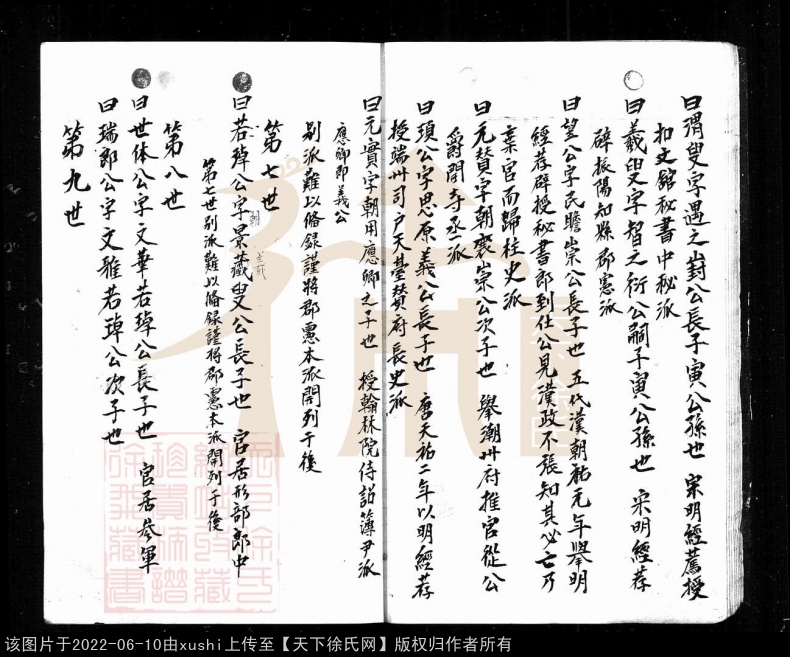 曰渭叟字遇之封公長子寅公孫也 宋明經薦授
扣文館秘書中秘派
曰羲叟字智之衍公嗣子寅公孫也 宋明經荐
辟振陽知縣郡憲派
曰望公字民瞻崇公長子也 五代漢朝祐元年舉明
經荐辟授秘書郎到仕公見漢政不張知其必亡乃
棄官而歸柱史派
曰元贊字朝褒崇公次子也 舉潮卅府推官從公
爵開寺丞派
曰項公字思原義公長子也 唐天祐二年以明經荐
授端卅司户天基贊府長史派
曰元實字朝用應卿之子也 授翰林院侍詔簿尹派
應卿即義公
别派難以俻録謹將郡憲本派開列于後
第七世
曰若𤧛公字景藏叟公長子也 官居形部郎中
朝
第七世别派難以俻録謹將郡憲本派開列于後
第八世
曰世体公字文華若𤧛公長子也 官居參軍
曰瑞郎公字文雅若𤧛公次子也
第九世
该图片于2022-06-10由xushi上传至【天下徐氏网】版权归作者所有